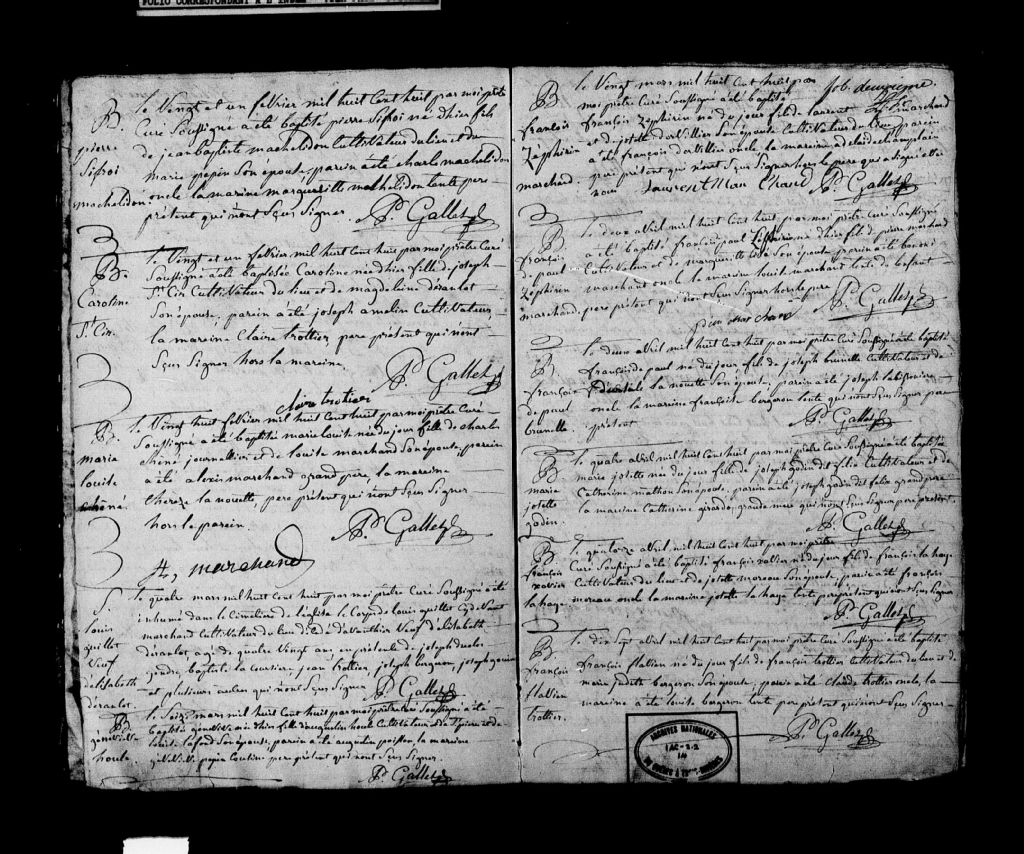 FOLIO CORRESPONDANT A L'INDEX
B.
pierre
Sifroi
machelidon
le vingt et un fevrier mil huit Cent huit par moi pretre
Curé Soussigné a été baptisé pierre Sifroi né d'hier fils
de jean baptiste machelidon Cultivateur du lieu et de
marie pepin Son épouse, parein a été charle machelidon
oncle la mareine marguerille mathelidon tante pere
présent qui n'ont Sçus Signer.
Pr. Gallet
B.
Caroline
St. Cir.
le Vingt et un fevrier mil huit Cent huit par moi prêtre Curé
Soussigné a été baptisée Caroline née d'hier fille de joseph
St. Cir Cultivateur du lieu et de magdeleine
Son épouse, parein a été joseph amelin Cultivateur,
la mareine Claire trottier, pere présent qui n'ont
Sçus Signer hors la mareine.
Pr. Gallet
claire trotier
B.
marie
louise
chêné
le Vingt huit fevrier mil huit Cent huit par moi prêtre Curé
Soussigné a été baptisé marie louise née du jour fille de charle
chêné journallier et de louise marchand Son épouse, parein
a été alexis marchand grand pere, la mareine
la nouette, pere présent qui n'ont Sçus Signer
hors le parein.
Pr. Gallet
A, marchand
S.
louis
guillet
Veuf
d'elisabeth
le quatre mars mil huit Cent huit par moi prêtre Curé Soussigné a été
inhumé dans le Cimetiere de l'église le Corps de louis guillet Cydevant
marchand Cultivateur du lieu décédé d'avanthier Veuf d'elisabeth
agé de quatre Vingt ans en présence de joseph
gendre, baptiste la Cursiere, jean trottier, joseph
et plusieurs autres qui n'ont Sçus Signer
Pr. Gallet
B
geneVieVe
houle
le Seize mars mil huit Cent huit par moi prêtre Curé Soussigné a été
baptisé geneVieVe née d'hier fille d'augustin houle Cultivateur et de
lafond Son épouse, parein a été augustin poisson, la mareine
geneVieVe pere présent qui n'ont Sçus Signer.
Pr. Gallet
B
francois
Zéphirin
marchand.
le Vingt mars mil huit Cent huit par
moi prêtre Curé Soussigné a été baptisé
francois Zéphirin né de jour fils de laurent marchand
et de josette dorvillier Son épouse Cultivateur du lieu parein
a été françois dorvillier oncle la mareine
pere présent qui n'ont Sçus Signer hors le pere qui a Signé avec
nous Laurent Mar Chand Pr. Gallet
B
françois
de paul
Zéphirin
marchand.
le deux avril mil huit Cent huit, par moi prêtre Curé Soussigné
a été baptisé françois paul Zéphirin né d'hier fils de pierre marchand
Cultivateur et de marguerite Son épouse parein a été
marchand oncle la mareine louise marchand tante de l'enfant
pere présent qui n'ont Sçus Signer hors le pere
Pr. Gallet
B
françois
de paul
brunelle
le deux avril mil huit Cent huit par moi prêtre Curé Soussigné a été baptisé
francois de paul né du jour fils de joseph brunelle Cultivateur et de
la nouette Son épouse, parein a été joseph
oncle la mareine françoise bergeron tante qui n'ont Sçus Signer pere
présent
Pr. Gallet
B
marie
josette
godin.
le quatre avril mil huit Cent huit par moi prêtre Curé Soussigné a été baptisé
marie josette née du jour fille de joseph godin dit felix Cultivateur et de
Catherine mathon Son épouse, parein a été joseph godin dit felix grand pere
la mareine Catherine girardo, grande mere qui n'ont Sçus Signer pere présent
Pr. Gallet
B
françois
xavier
la haye.
le quatorze avril mil huit Cent huit par moi prêtre
Curé Soussigné a été baptisé françois xavier né du jour fils de françois la haye
Cultivateur du lieu et de josette moreau Son épouse, parein a été françois
moreau oncle la mareine josette la haye tante pere présent qui n'ont Sçus Signer
Pr. Gallet
B
françois
flavien
trottier.
le dix Sept avril mil huit Cent huit par moi prêtre Curé Soussigné a été baptisé
françois flavien né du jour fils de françois trottier Cultivateur du lieu et de
marie judith bergeron Son épouse, parein a été Claude trottier oncle, la
mareine a été louise bergeron tante, pere présent qui n'ont Sçus Signer
Pr. Gallet
ARCHIVES NATIONALES